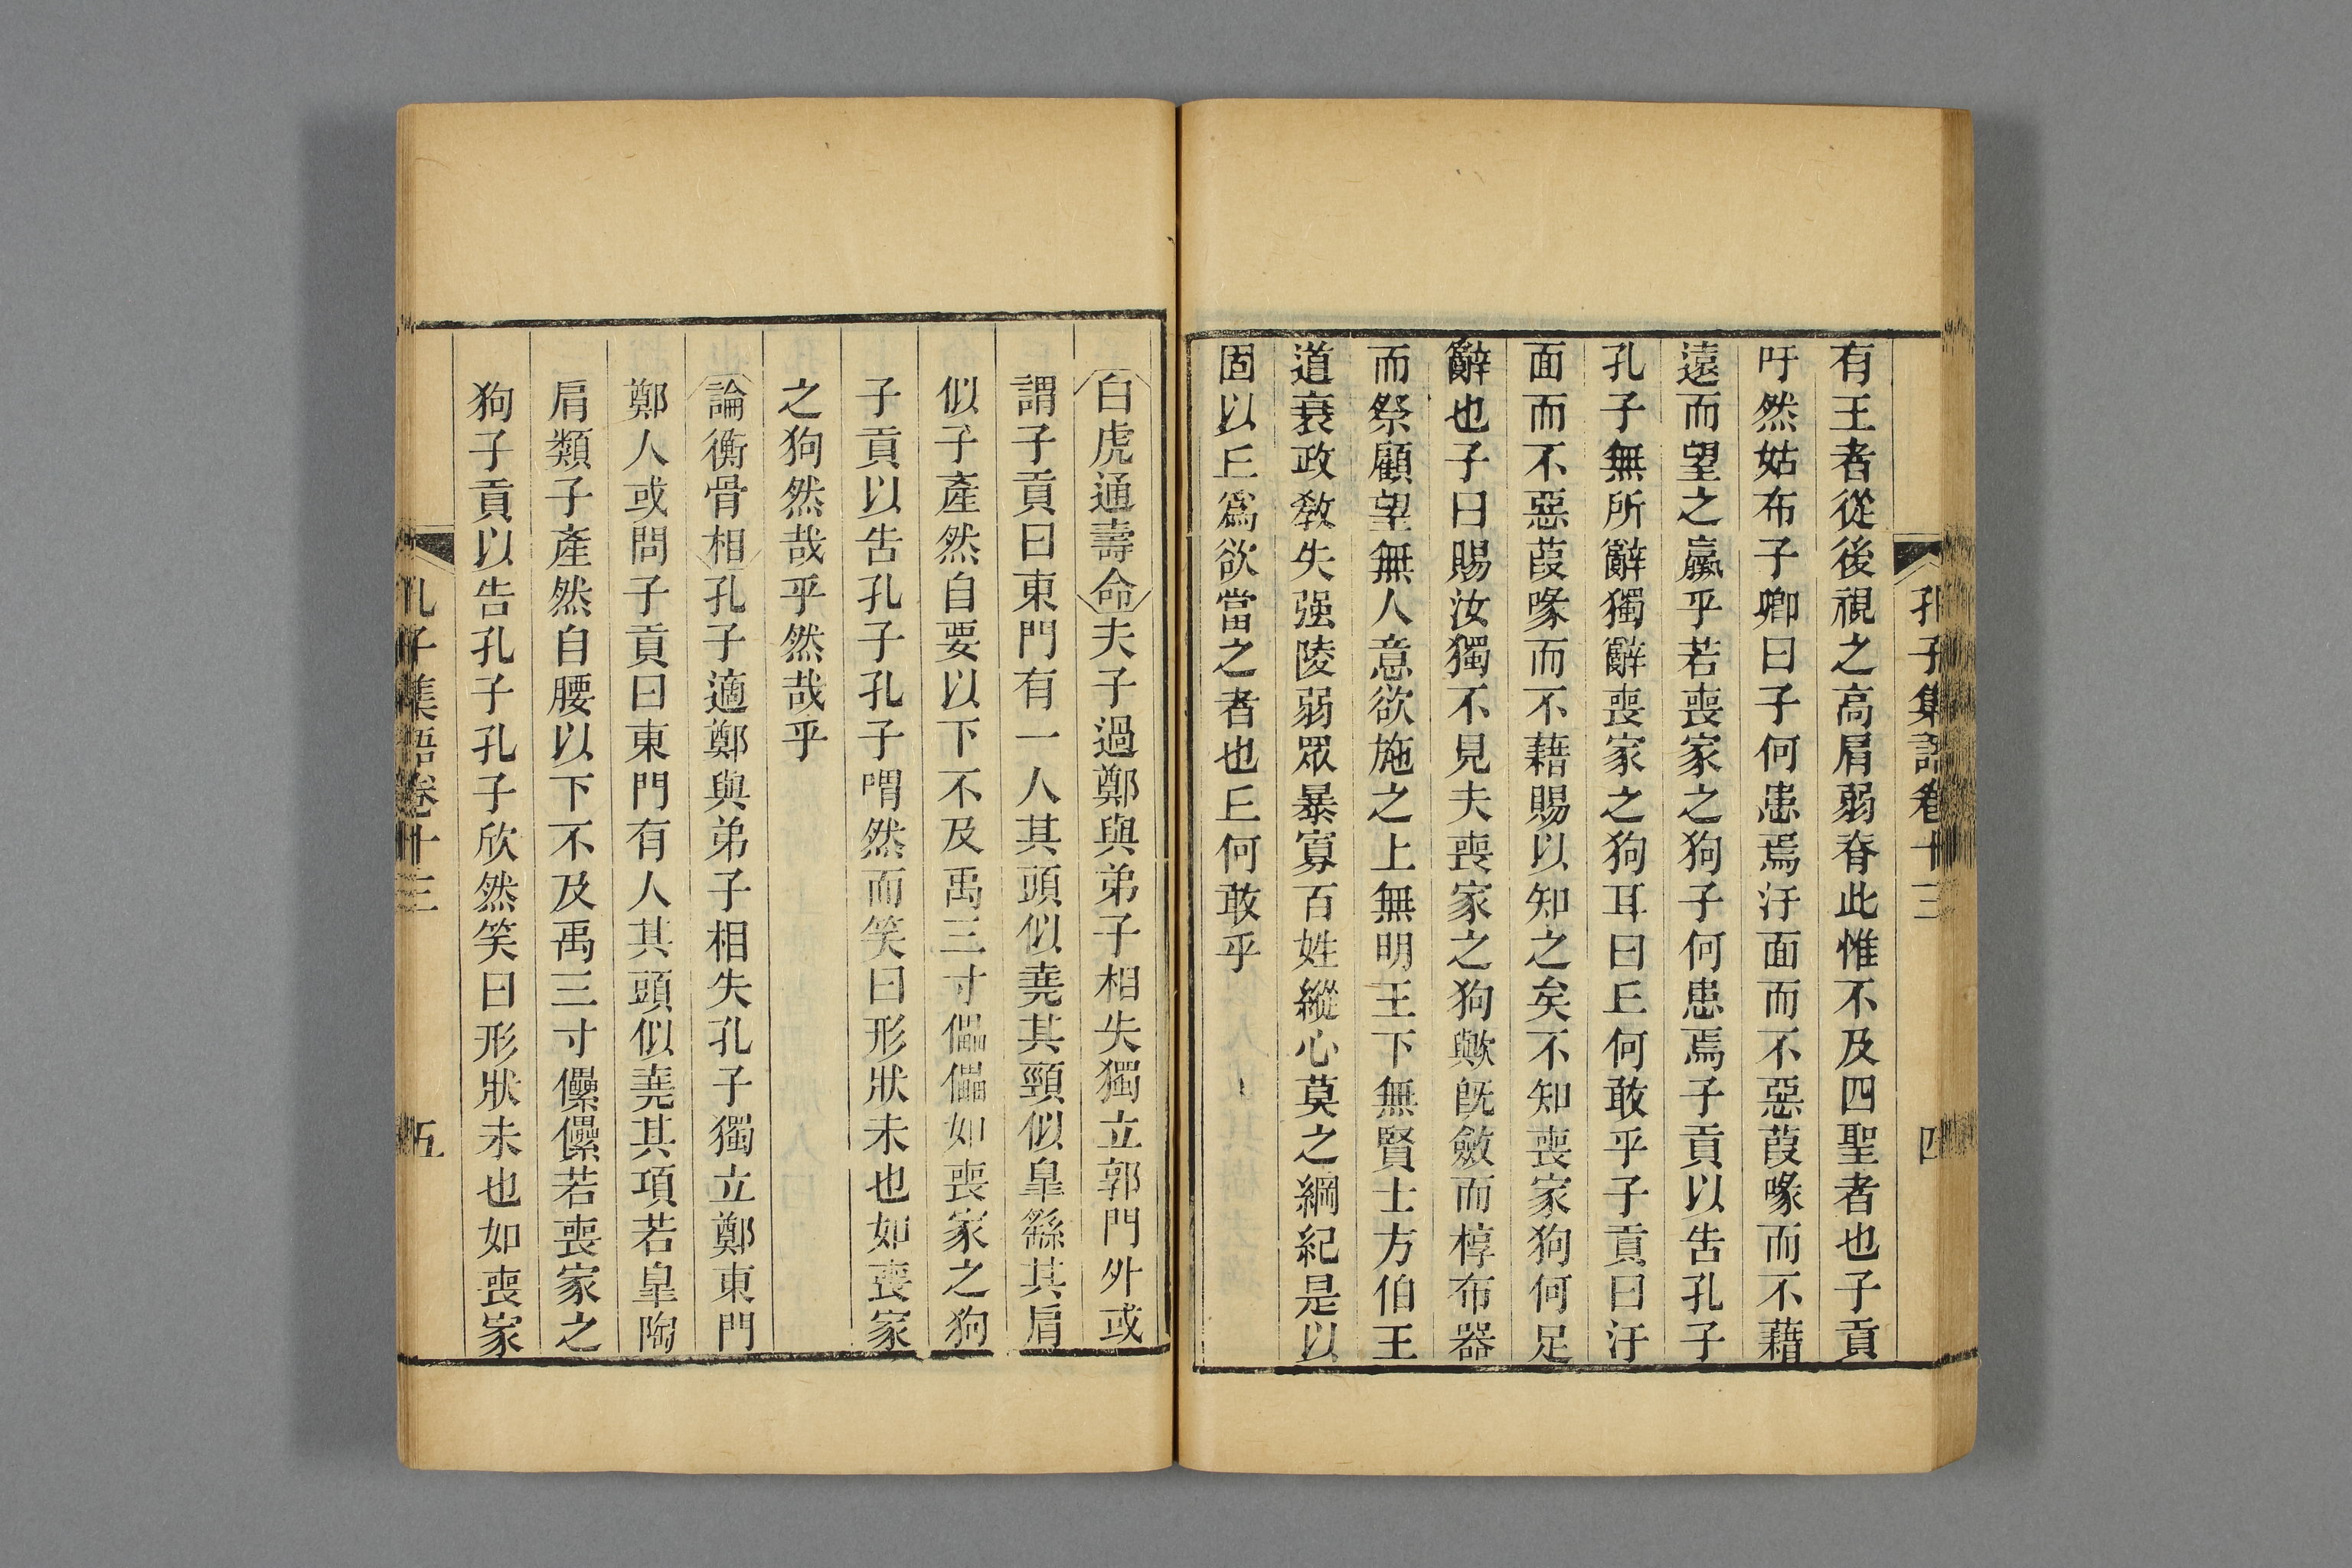 孔子集語卷十三 四
有王者從後視之高肩弱脊此惟不及四聖者也子貢
吁然姑布子卿曰子何患焉汙面而不惡葭喙而不藉
遠而望之羸乎若喪家之狗子何患焉子貢以告孔子
孔子無所辭獨辭喪家之狗耳曰丘何敢乎子貢曰汙
面而不惡葭喙而不藉賜以知之矣不知喪家狗何足
辭也子曰賜汝獨不見夫喪家之狗歟旣斂而椁布器
而祭顧望無人意欲施之上無明王下無賢士方伯王
道衰政敎失强陵弱眾暴寡百姓縱心莫之綱紀是以
固以丘爲欲當之者也丘何敢乎
白虎通壽命夫子過鄭與弟子相失獨立郭門外或
謂子貢曰東門有一人其頭似堯其頸似皐繇其肩
似子產然自要以下不及禹三寸儡儡如喪家之狗
子貢以告孔子孔子喟然而笑曰形狀未也如喪家
之狗然哉乎然哉乎
論衡骨相孔子適鄭與弟子相失孔子獨立鄭東門
鄭人或問子貢曰東門有人其頭似堯其項若皐陶
肩類子產然自腰以下不及禹三寸儽儽若喪家之
狗子貢以告孔子孔子欣然笑曰形狀未也如喪家
孔子集語卷十三 五